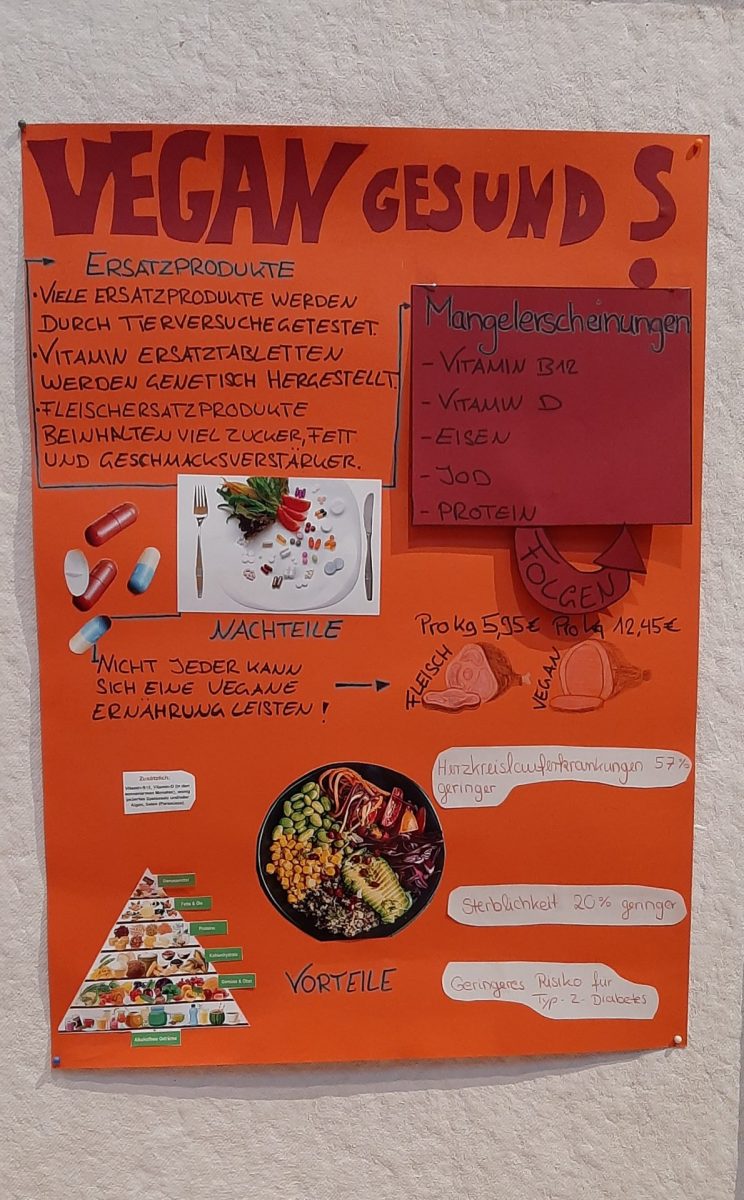 VEGAN GESUND ?
ERSATZPRODUKTE
• VIELE ERSATZPRODUKTE WERDEN
DURCH TIERVERSUCHE GETESTET.
• VITAMIN ERSATZTABLETTEN
WERDEN GENETISCH HERGESTELLT.
• FLEISCHERSATZPRODUKTE
BEINHALTEN VIEL ZUCKER, FETT
UND GESCHMACKSVERSTÄRKER.
Mangelerscheinungen
- VITAMIN B12
- VITAMIN D
- EISEN
- JOD
- PROTEIN
FOLGEN
NACHTEILE
NICHT JEDER KANN
SICH EINE VEGANE
ERNÄHRUNG LEISTEN !
Pro kg 5,95€ Pro kg 12,45€
FLEISCH
VEGAN
Herzkreislauferkrankungen 57%
geringer
Zusätzlich:
Vitamin B12, Vitamin D (in den
sonnenarmen Monaten), wenig
Algen, Salat
Genussmittel
Fette & Öle
Proteine
Kohlenhydrate
Gemüse & Obst
Alkoholfreie Getränke
Sterblichkeit 20% geringer
VORTEILE
Geringeres Risiko für
Typ-2-Diabetes